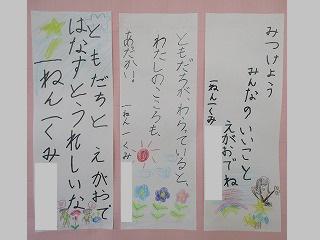 みつけよう
みんなの いいこと
えがおでね
一ねん一くみ
ともだちが、わらっていると、
わたしのこころも、
あたたかい。
一ねん一くみ
ともだちと えがおで
はなすとうれしいな
一ねん一くみ